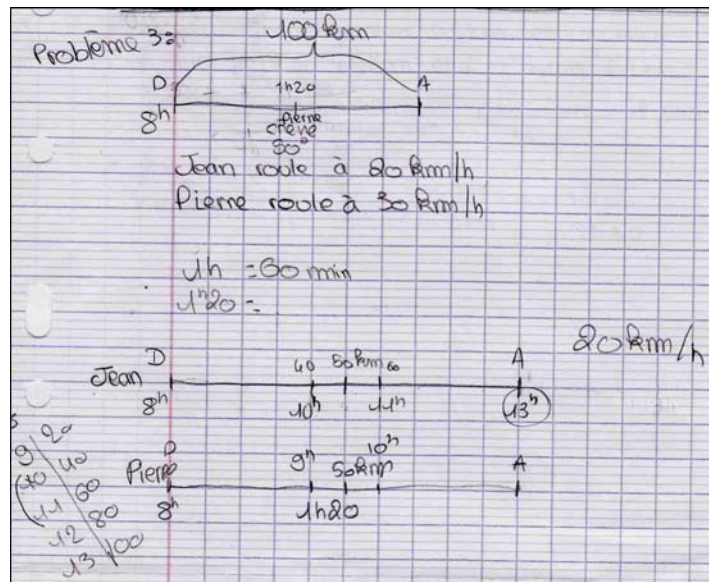 Problème 3:
100 km
D 1h20 A
8h
Pierre
crève
50
Jean roule à 20 km/h
Pierre roule à 30 km/h
1h = 60 min
1h20 =
20 km/h
D 40 50 km 60 A
Jean
8h 10h 11h 13h
D 9h 50 km 10h A
Pierre
8h 1h20
9 20
10 40
11 60
12 80
13 100